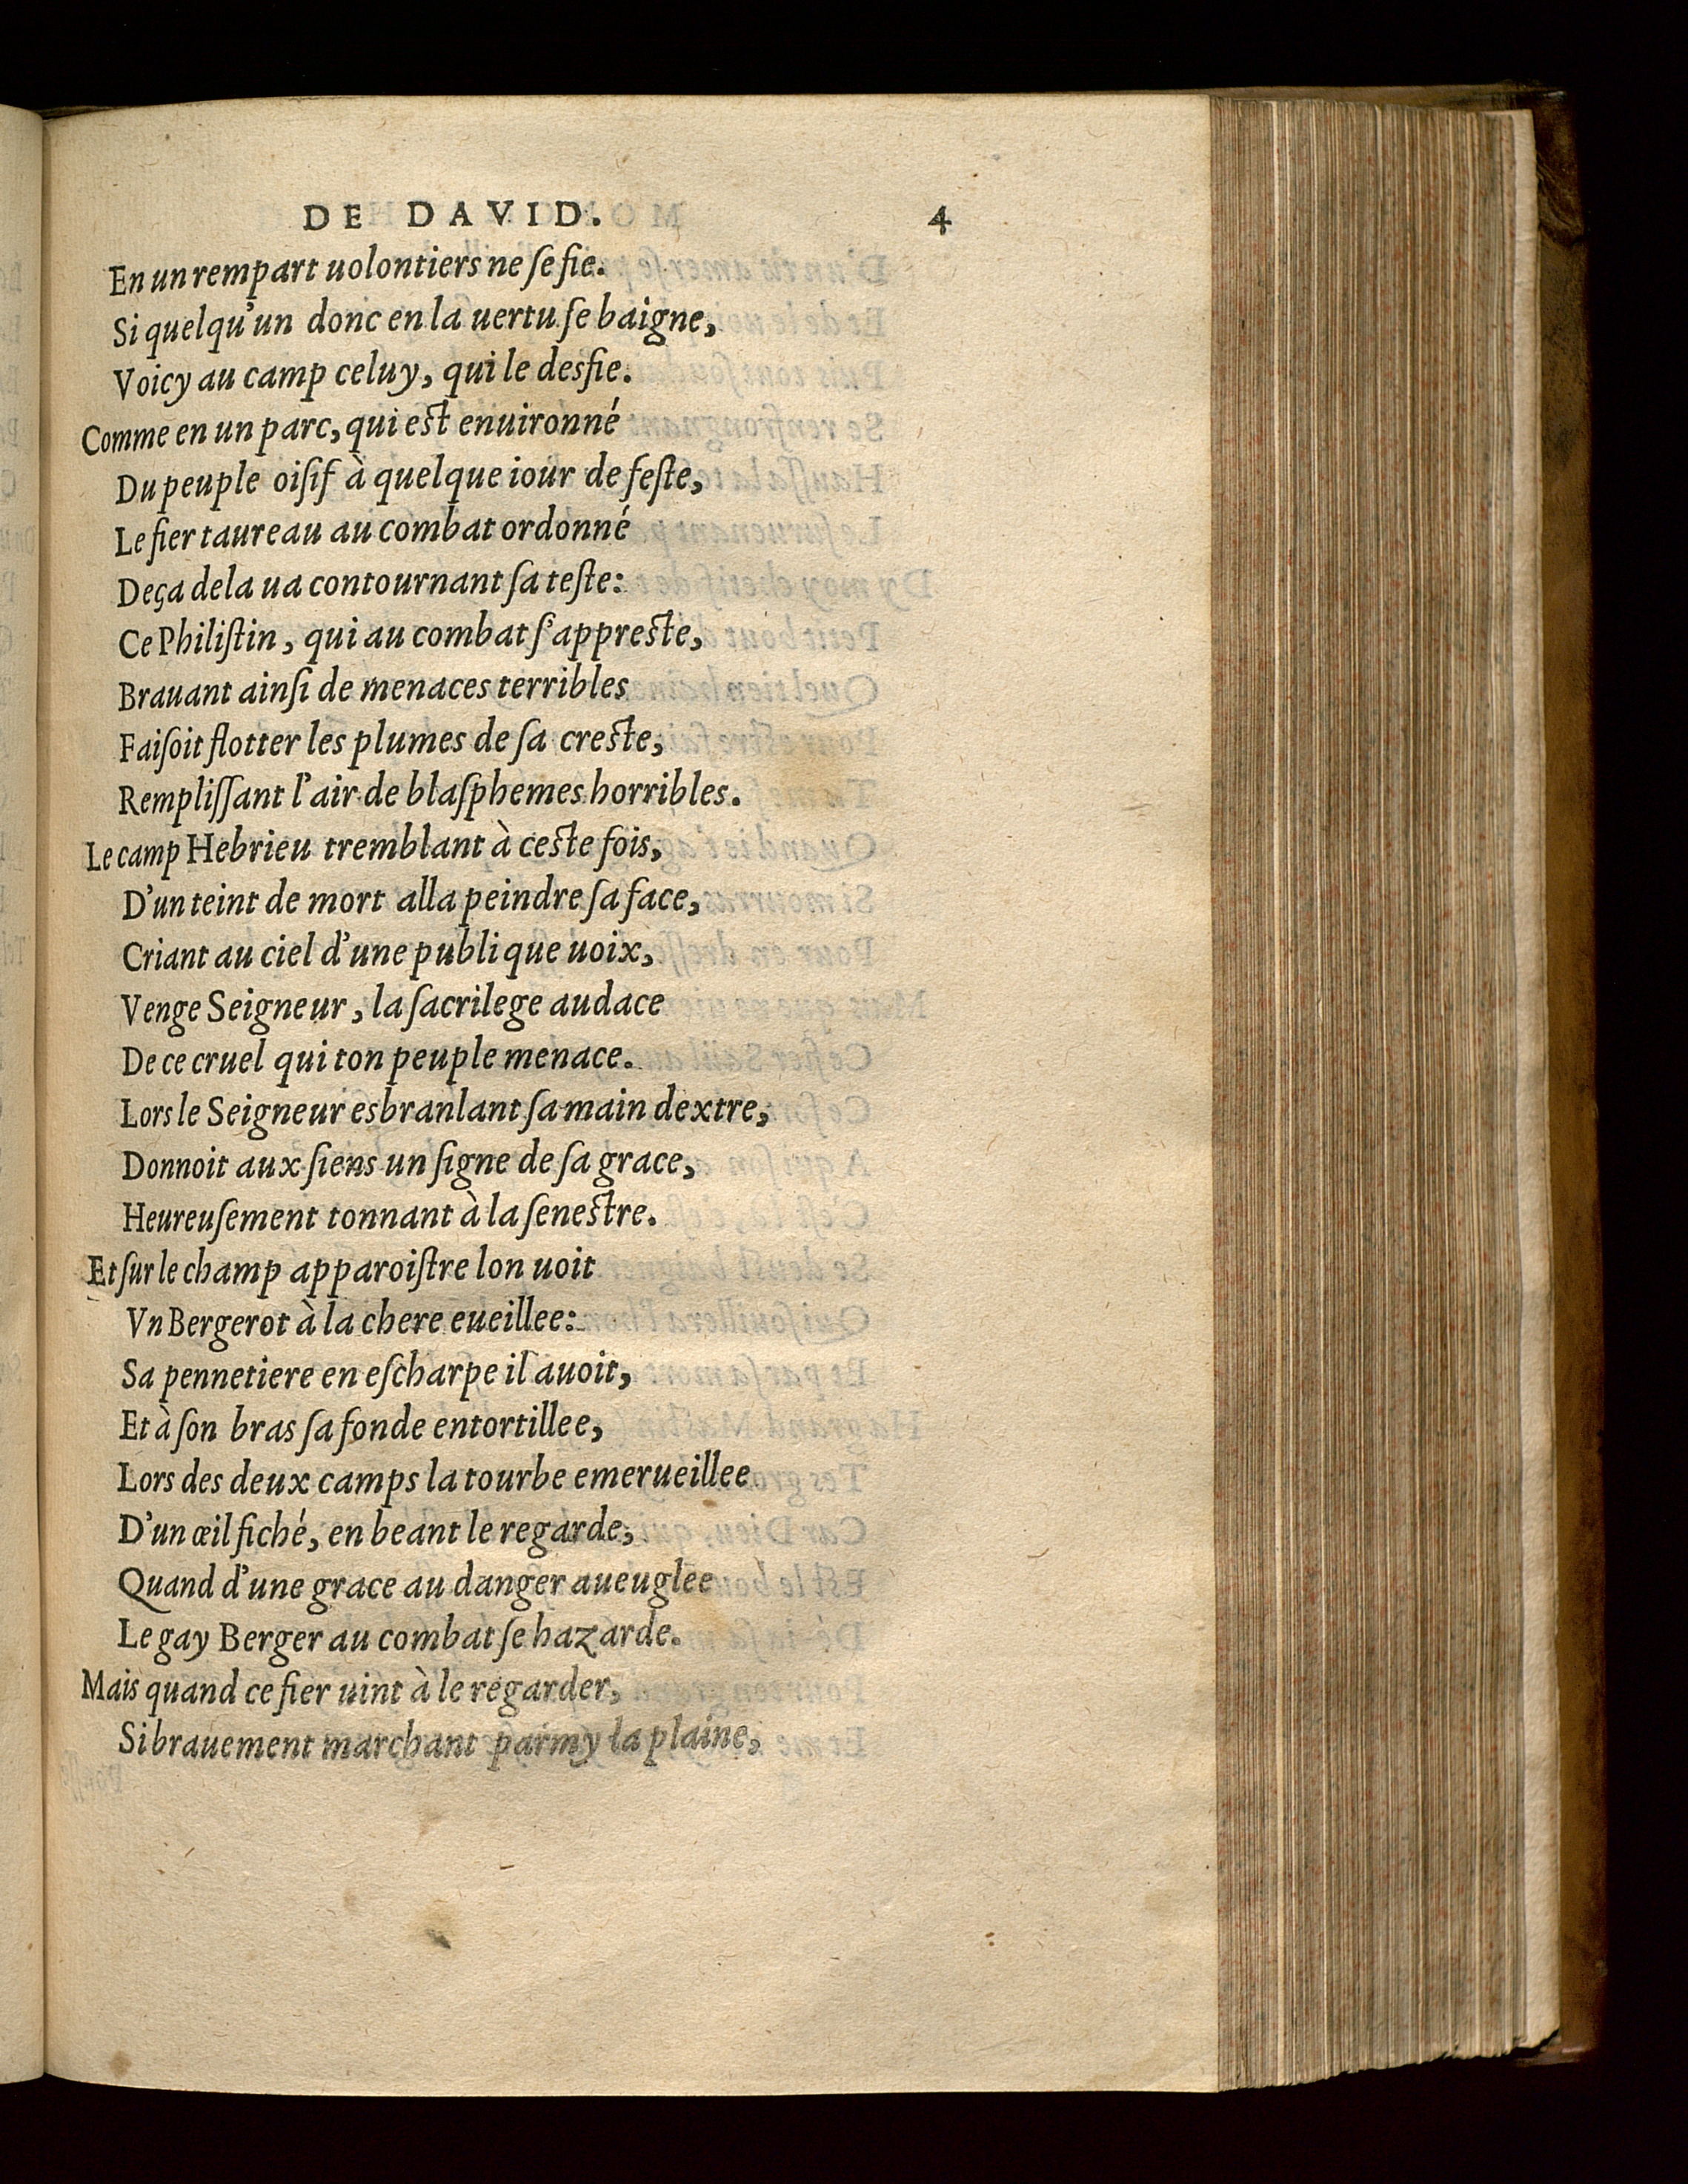 DE DAVID. 4
En un rempart uolontiers ne ſe fie.
Si quelqu'un donc en la uertu ſe baigne,
Voicy au camp celuy, qui le desfie.
Comme en un parc, qui est enuironné
Du peuple oiſif à quelque iour de feſte,
Le fier taureau au combat ordonné
Deça dela ua contournant ſa teſte:
Ce Philiſtin, qui au combat ſ'appreste,
Brauant ainſi de menaces terribles
Faiſoit flotter les plumes de ſa creste,
Rempliſſant l'air de blaſphemes horribles.
Le camp Hebrieu tremblant à ceste fois,
D'un teint de mort alla peindre ſa face,
Criant au ciel d'une publique uoix,
Venge Seigneur, la ſacrilege audace
De ce cruel qui ton peuple menace.
Lors le Seigneur esbranlant ſa main dextre,
Donnoit aux ſiens un ſigne de ſa grace,
Heureuſement tonnant à la ſenestre.
Et ſur le champ apparoiſtre lon uoit
Vn Bergerot à la chere eueillee:
Sa pennetiere en eſcharpe il auoit,
Et à ſon bras ſa fonde entortillee,
Lors des deux camps la tourbe emerueillee
D'un œil fiché, en beant le regarde,
Quand d'une grace au danger aueuglee
Le gay Berger au combat ſe hazarde.
Mais quand ce fier uint à le regarder,
Si brauement marchant parmy la plaine,